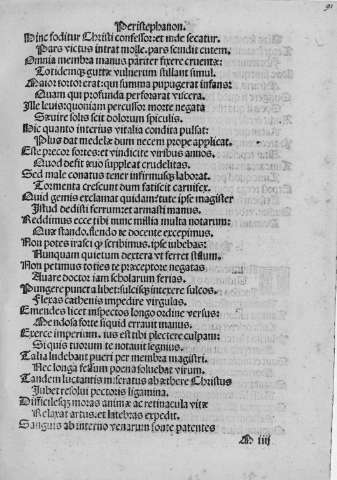 91
Peristephanon.
Hinc foditur Christi confessor: et inde secatur.
Pars victus intrat molle, pars scindit cutem.
Omnia membra manus pariter fixere cruentæ:
Totidemqꝫ guttæ vulnerum stillant simul.
Maior tortor erat: qui summa pupugerat infans:
Quam qui profunda perforarat viscera.
Ille leuis: quoniam percussor morte negata
Sæuire solis scit dolorum spiculis.
Hic quanto interius vitalia condita pulsat:
Plus dat medelæ dum necem prope applicat.
Este precor fortes: et vincidite viribus annos.
Quod defit æuo suppleat crudelitas.
Sed male conatus tener infirmusqꝫ laborat.
Tormenta crescunt dum fatiscit carnifex.
Quid gemis exclamat quidam: tute ipse magister
Istud dedisti ferrum: et armasti manus.
Reddimus ecce tibi nunc millia multa notarum:
Quæ stando, flendo te docente excepimus.
Non potes irasci qꝫ scribimus, ipse iubebas:
Nunquam quietum dextera vt ferret stilum.
Non petimus toties te præceptore negatas
Auare doctor iam scholarum ferias.
Pungere puncta libet: sulcisqꝫ intexere sulcos.
Flexas cathenis impedire virgulas.
Emendes licet inspectos longo ordine versus:
Mendosa forte siquid errauit manus.
Exerce imperium, ius est tibi plectere culpam:
Siquis tuorum te notauit legnius.
Talia ludebant pueri per membra magistri.
Nec longa fessum poena soluebat virum.
Tandem luctantis miseratus ab æthere Christus
Jubet resolui pectoris ligamina.
Difficilesqꝫ moras animæ ac retinacula vitæ
Relaxat artus, et latebras expedit.
Sanguis ab interno venarum fonte patentes
M iiij